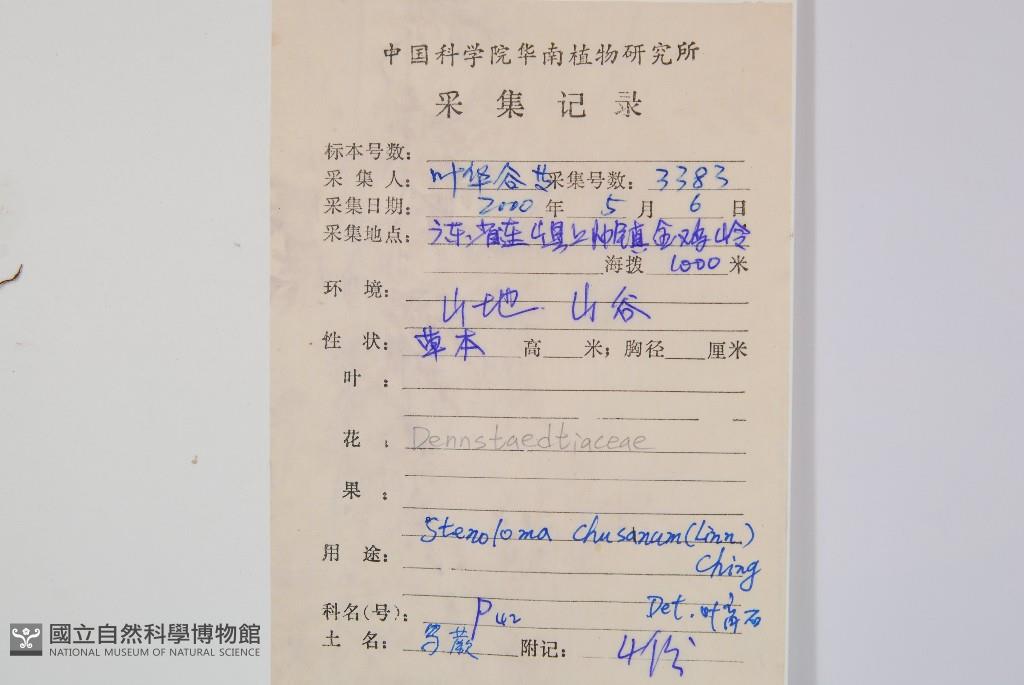 中国科学院华南植物研究所
采集记录
标本号数：
采集人：叶华谷 采集号数：3383
采集日期：2000年5月6日
采集地点：广东省连山县上帅镇金鸡岭
海拨 1000 米
环境：山地 山谷
性状：草本 高 米；胸径 厘米
叶：
花：Dennstaedtiaceae
果：
Stenoloma chusanum (Linn.)
用途：
Ching
科名(号)：P42 Det. 叶育石
土名：乌蕨 附记：4份
國立自然科學博物館
NATIONAL MUSEUM OF NATURAL SCIENCE